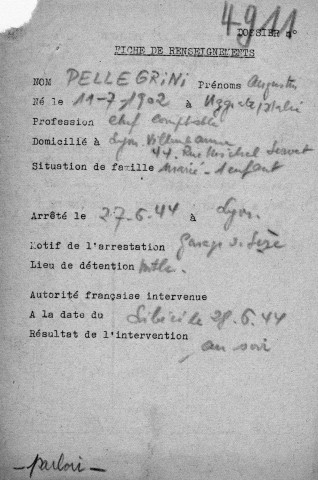 4911
DOSSIER N°
FICHE DE RENSEIGNEMENTS
NOM PELLEGRINI Prénoms Augustin
Né le 11-7-1902 à
Profession chef comptable
Domicilié à Lyon Villeurbanne
44. Rue Michel Servet
Situation de famille Marié - 1 enfant
Arrêté le 27.6.44 à Lyon.
Motif de l'arrestation Garage
Lieu de détention Mtluc
Autorité française intervenue
A la date du Libéré le 28.6.44
Résultat de l'intervention au soir
- parloir -